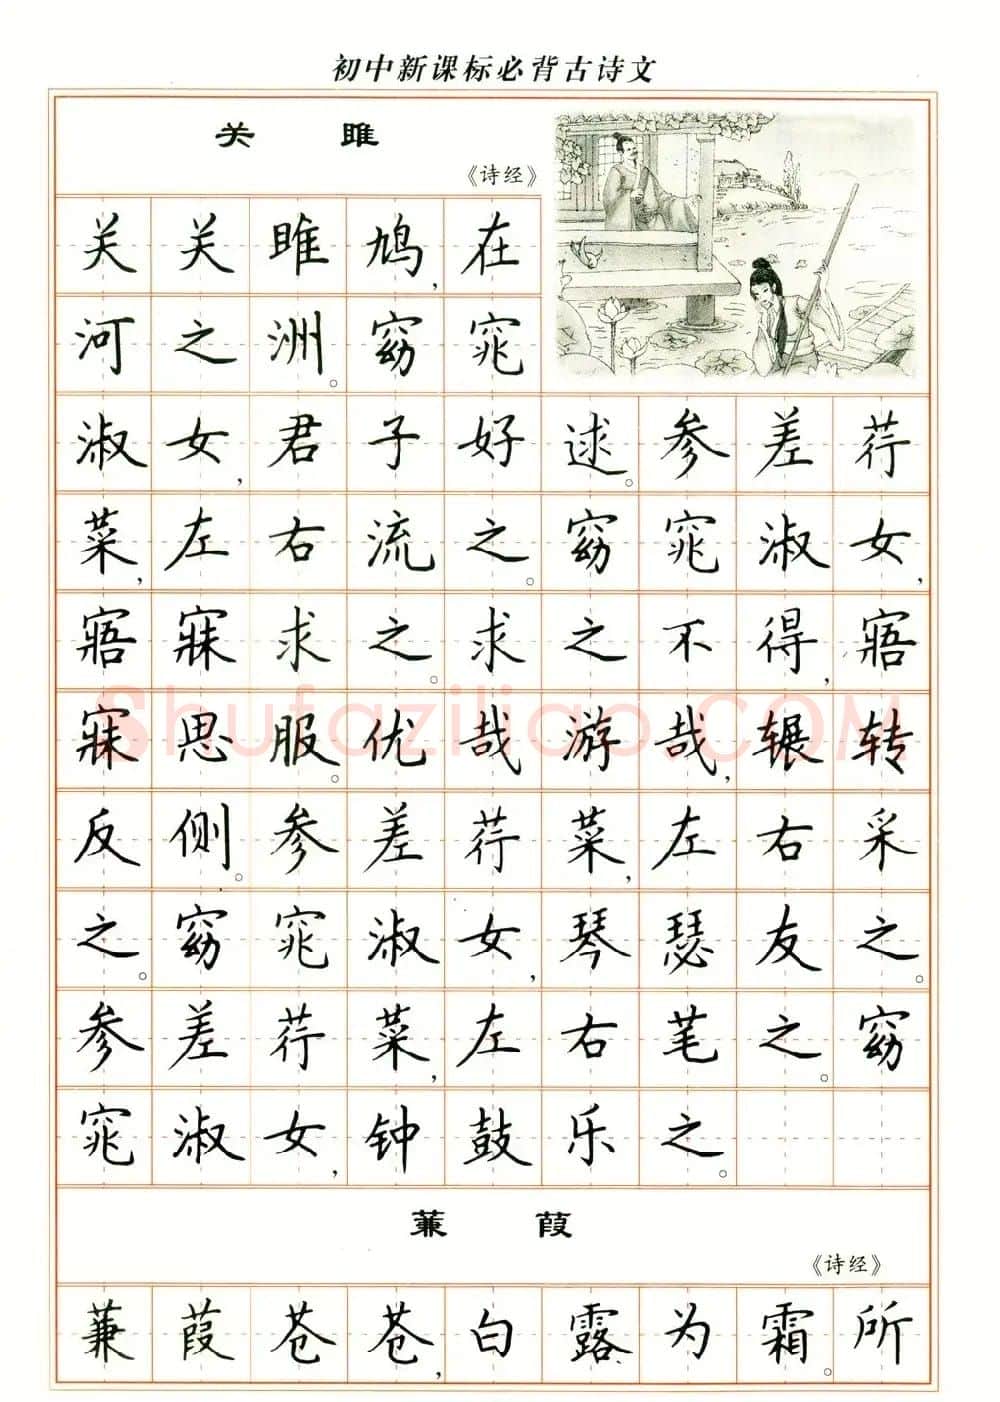 初中新课标必背古诗文
关 雎
《诗经》
关关雎鸠,在
河之洲。窈窕
淑女,君子好逑。参差荇
菜,左右流之。窈窕淑女,
寤寐求之。求之不得,寤
寐思服。优哉游哉,辗转
反侧。参差荇菜,左右采
之。窈窕淑女,琴瑟友之。
参差荇菜,左右芼之。窈
窕淑女,钟鼓乐之。
蒹 葭
《诗经》
蒹葭苍苍,白露为霜。所
Shufaziliao.COM